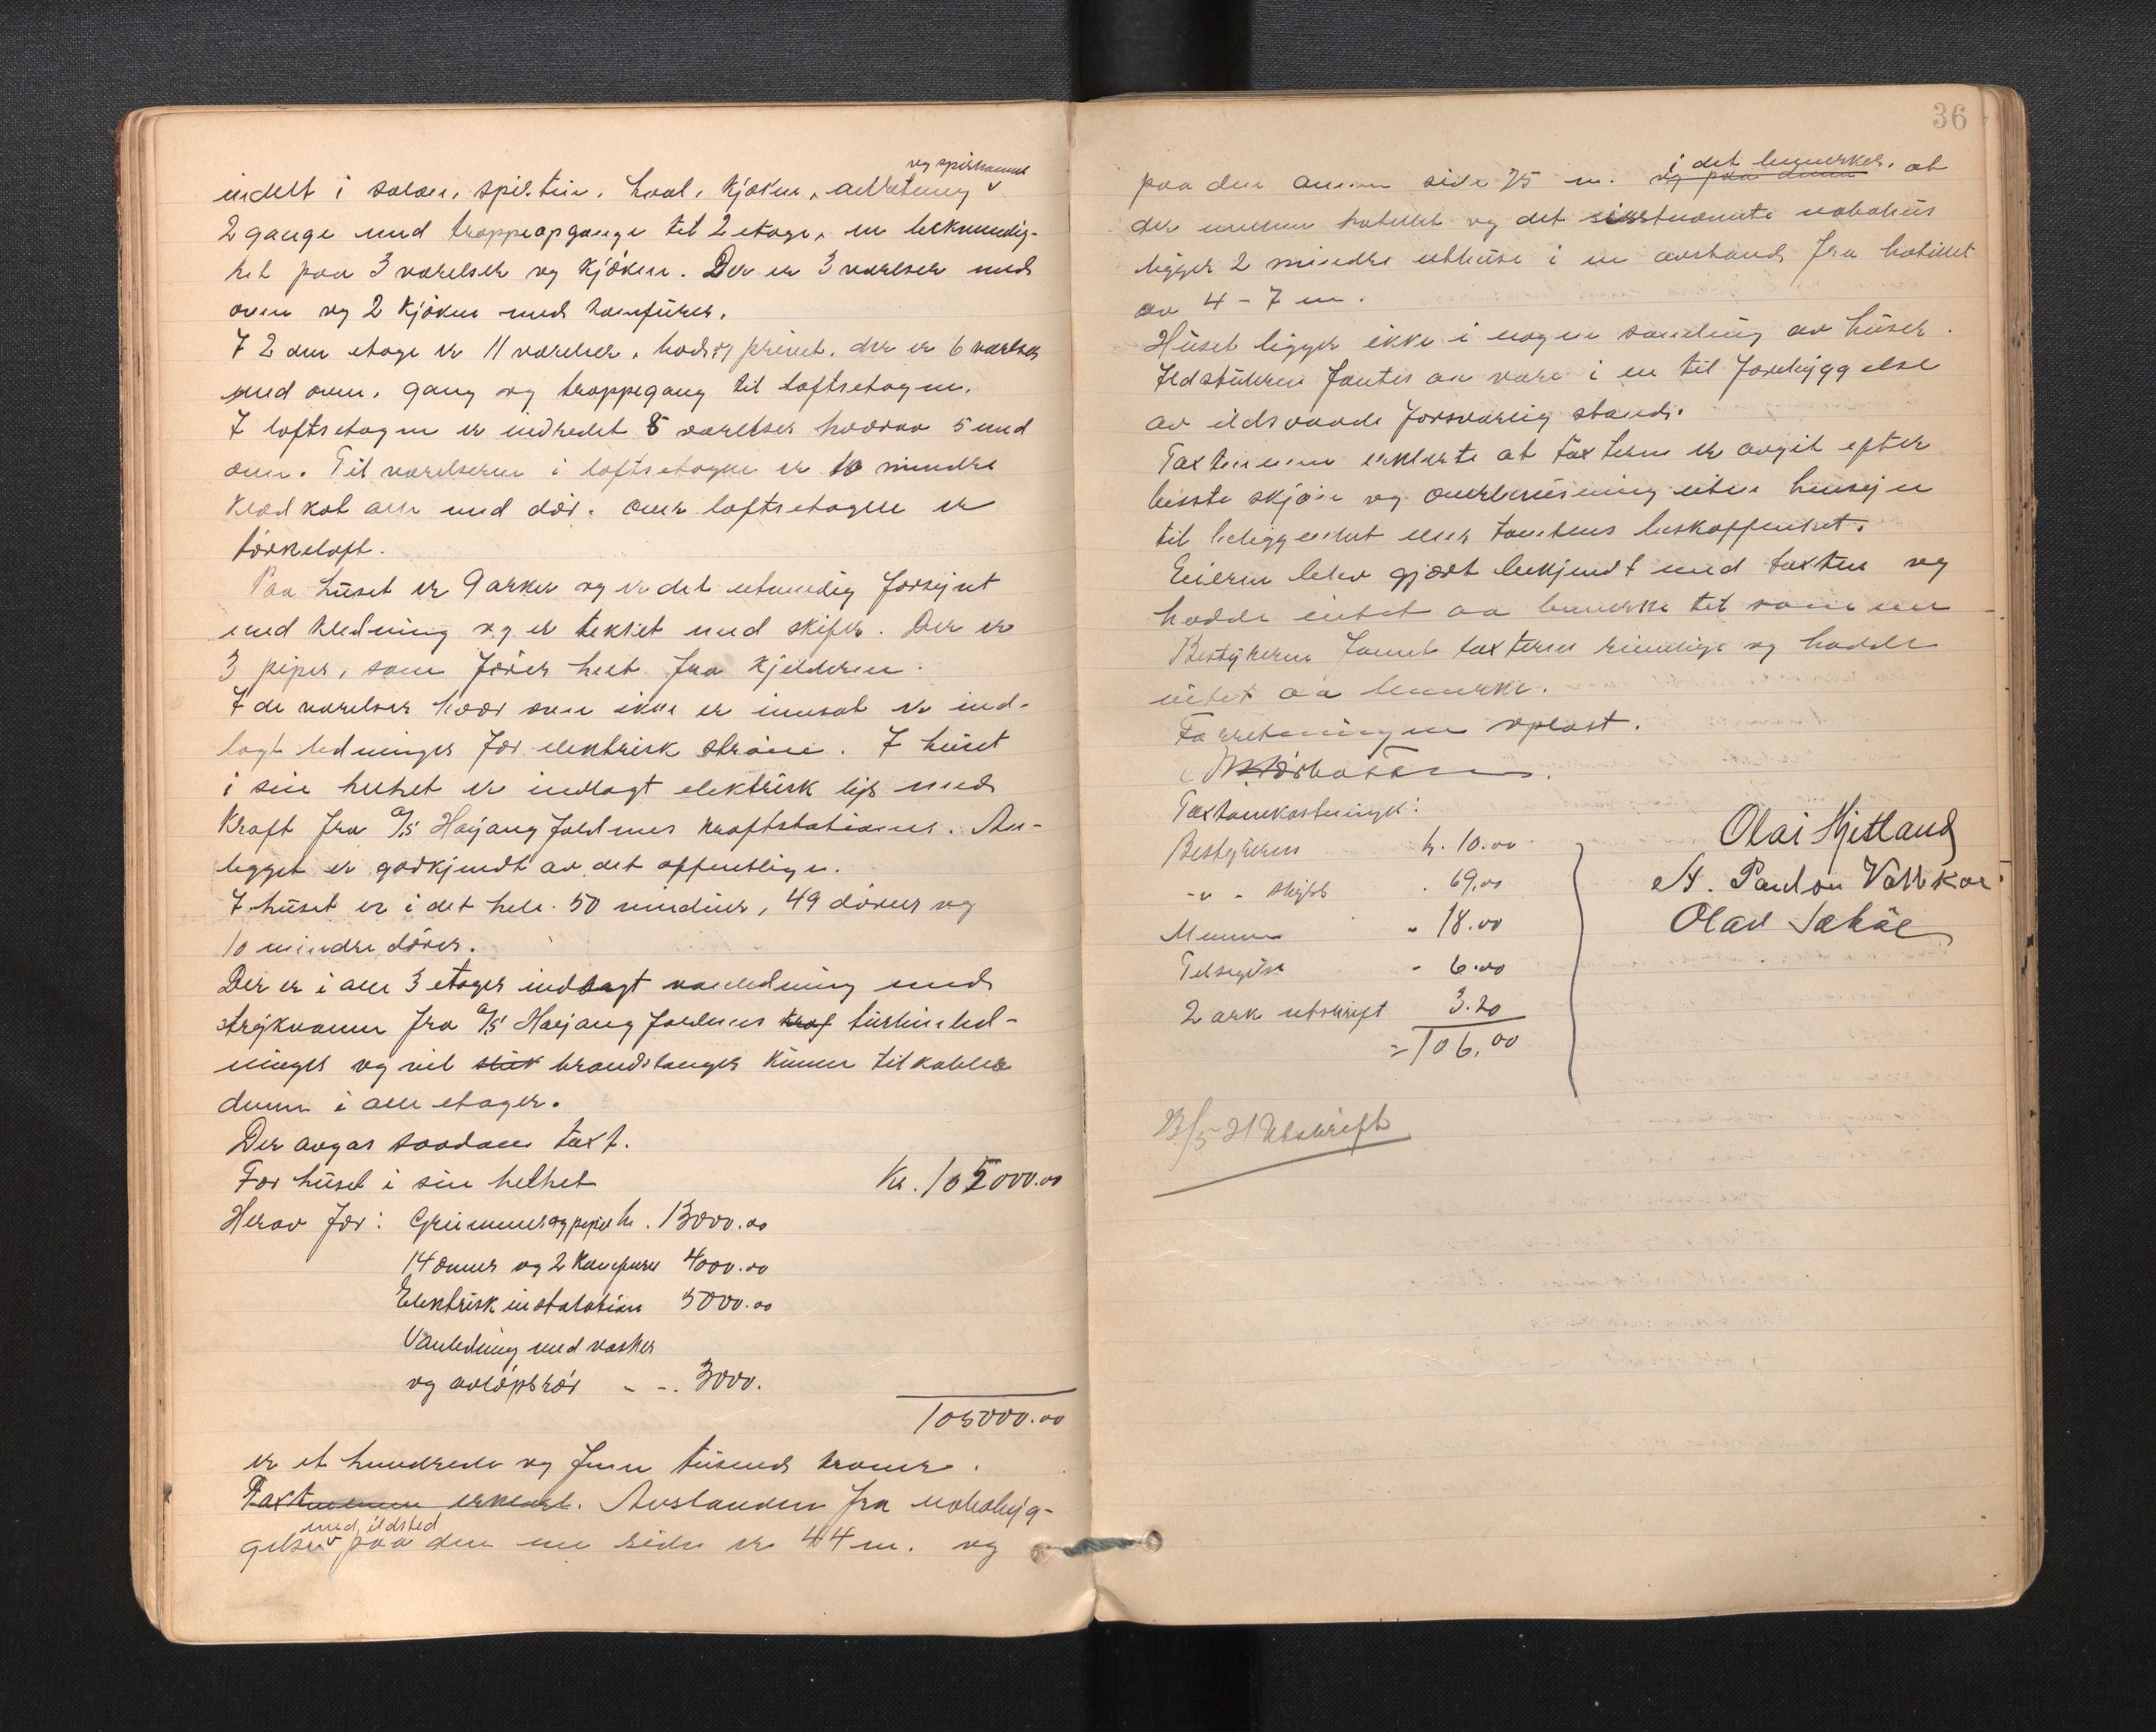 og spiskammer
indelt i salon, spisestue, hall, kjøken, anretning
2 gange med trappeopgange til 2 etage, en bekvemmelig-
het paa 3 værelser og kjøken. Der er 3 værelser med
ovn og 2 kjøken med komfurer.
I 2 den etage er 11 værelser, bad og privet. der er 6 værelser
med ovn, gang og trappegang til loftsetagen.
I loftsetagen er indredet 8 værelser hvorav 5 med
ovn. Til værelserne i loftsetagen er 10 mindre
kot alle med dør. Over loftsetagen er
tørkeloft.
Paa huset er 9 arker og er det utvendig forsynt
med kledning og er tekket med skifer. Der er
3 piper, som fører helt fra kjelderen.
I de værelser hvor ovn ikke er innsat er ind-
lagt ledninger for elektrisk strøm. I huset
i sin helhet er indlagt elektrisk lys med
kraft fra A/S Høyangfaldenes kraftstation. An-
legget er godkjendt av det offentlige.
I huset er i det hele 50 vinduer, 49 dører og
10 mindre dører.
Der er i alle 3 etager indlagt vannledning med
trykvann fra A/S Høyangfaldenes kraf turbinled-
ninger og vil slik brandslanger kunne tilkobles
denne i alle etager.
Der avgas saadan taxt.
For huset i sin helhet Kr. 105000.00
Herav for: Grunmur og piper kr. 13000.00
14 ovner og 2 komfurer 4000.00
Elektrisk instalation 5000.00
Vanledning med vasker
og avløpsrør - -. 3000.
105000.00
er et hundrede og fem tusend kroner.
Taxtmennene erklært. Avstanden fra nabobyg-
med ildsted
gelsen paa den ene side er 44 m. og
36
i det bemerkes, at
paa den annen side 75 m. og paa denne
der mellem hotellet og det sistnevnte nabohus
ligger 2 mindre uthuse i en avstand fra hotellet
av 4 - 7 m.
Huset ligger ikke i nogen samling av huser.
Ildstederne fantes aa være i en til forebyggelse
av ildsvaade forsvarlig stand.
Taxtmennene erklærte at taxterne er avgit efter
beste skjøn og overbevisning uten hensyn
til beliggenhet eller tomtens beskaffenhet.
Eieren blev gjort bekjendt med taxten og
hadde intet aa bemerke til samme
Bestyreren fant taxterne rimelige og hadde
intet aa bemerke.
Forretningen oplæst.
Taxtomkostninger:
Bestyreren kr. 10.00
- " - skyds . 69.00
Mennene " 18.00
Tilsigelse - 6.00
2 ark utskrift 3.20
= 106.00
Olai Hjetland
A. Paulson Vattekar
Olav Sæbøe
23/5 21 Utskrift